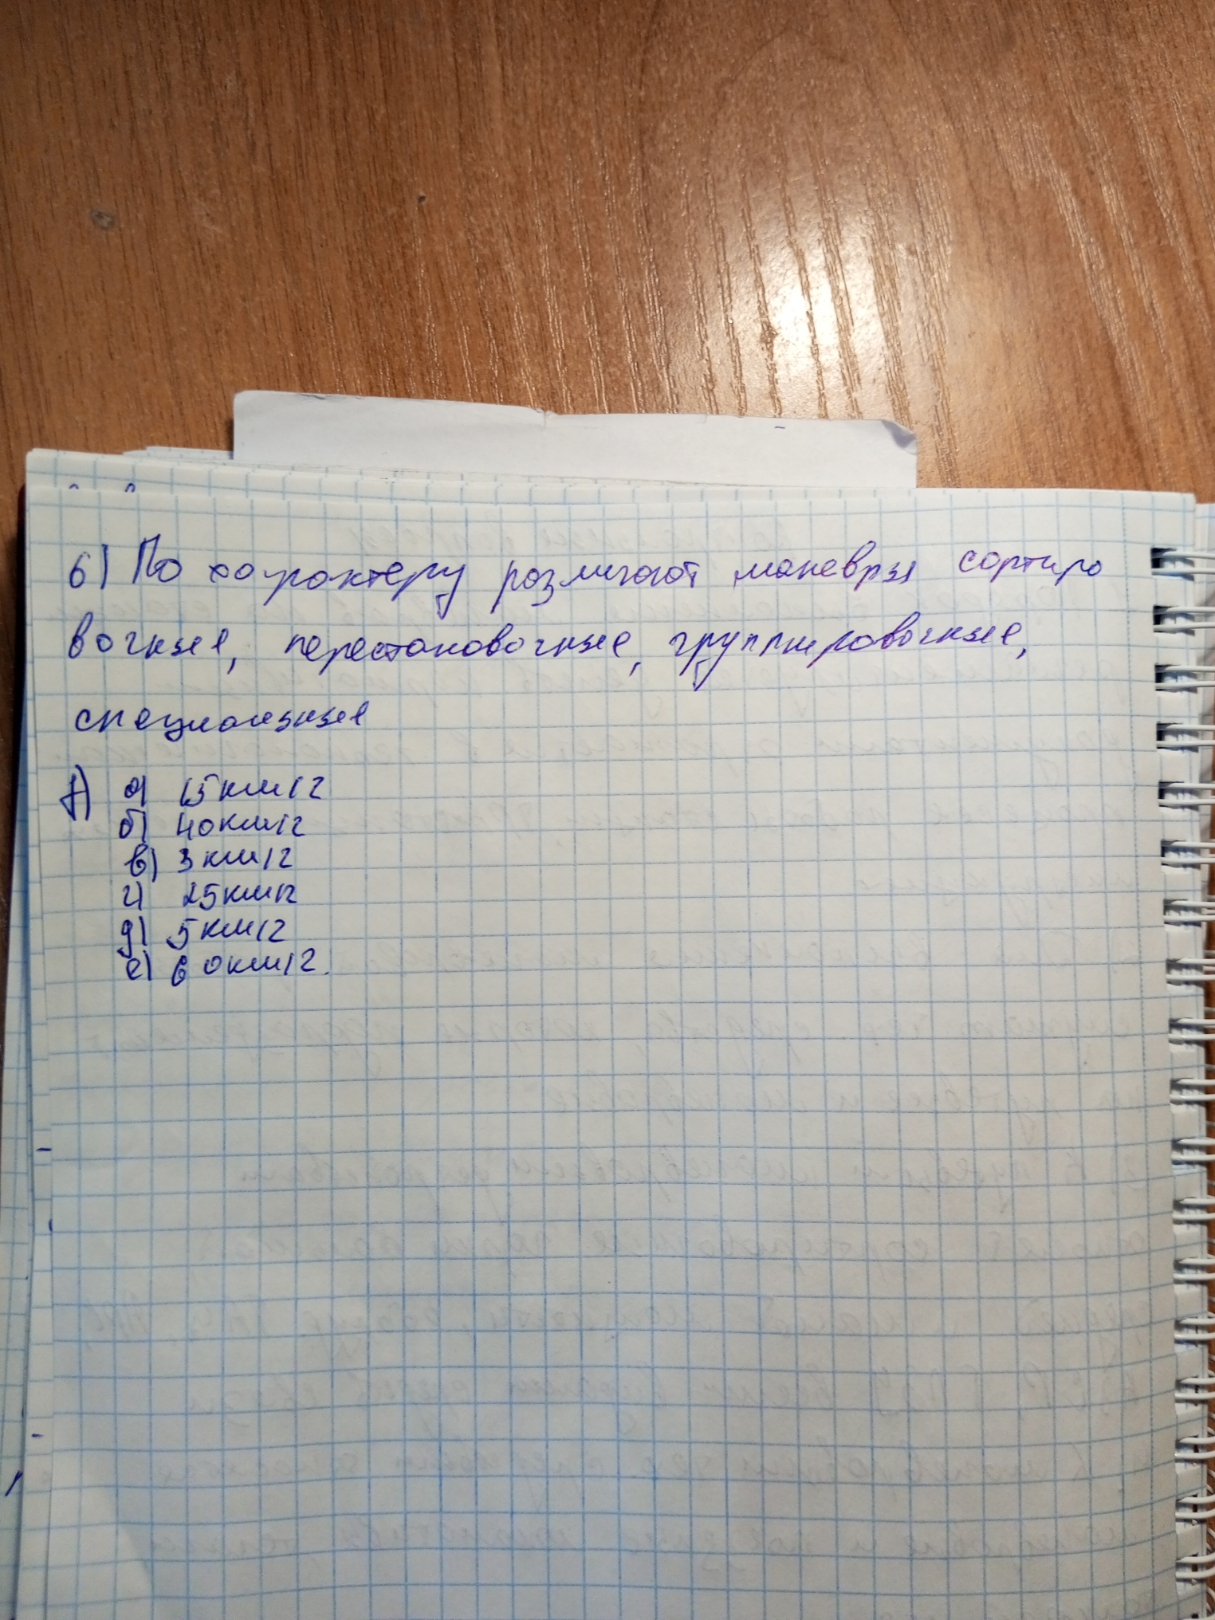 6) По характеру различают маневры сортиро
вочные, перестановочные, группировочные,
специальные
7) а) 15км/г
б) 40км/г
в) 3км/г
г) 25км/г
д) 5км/г
е) 60км/г.